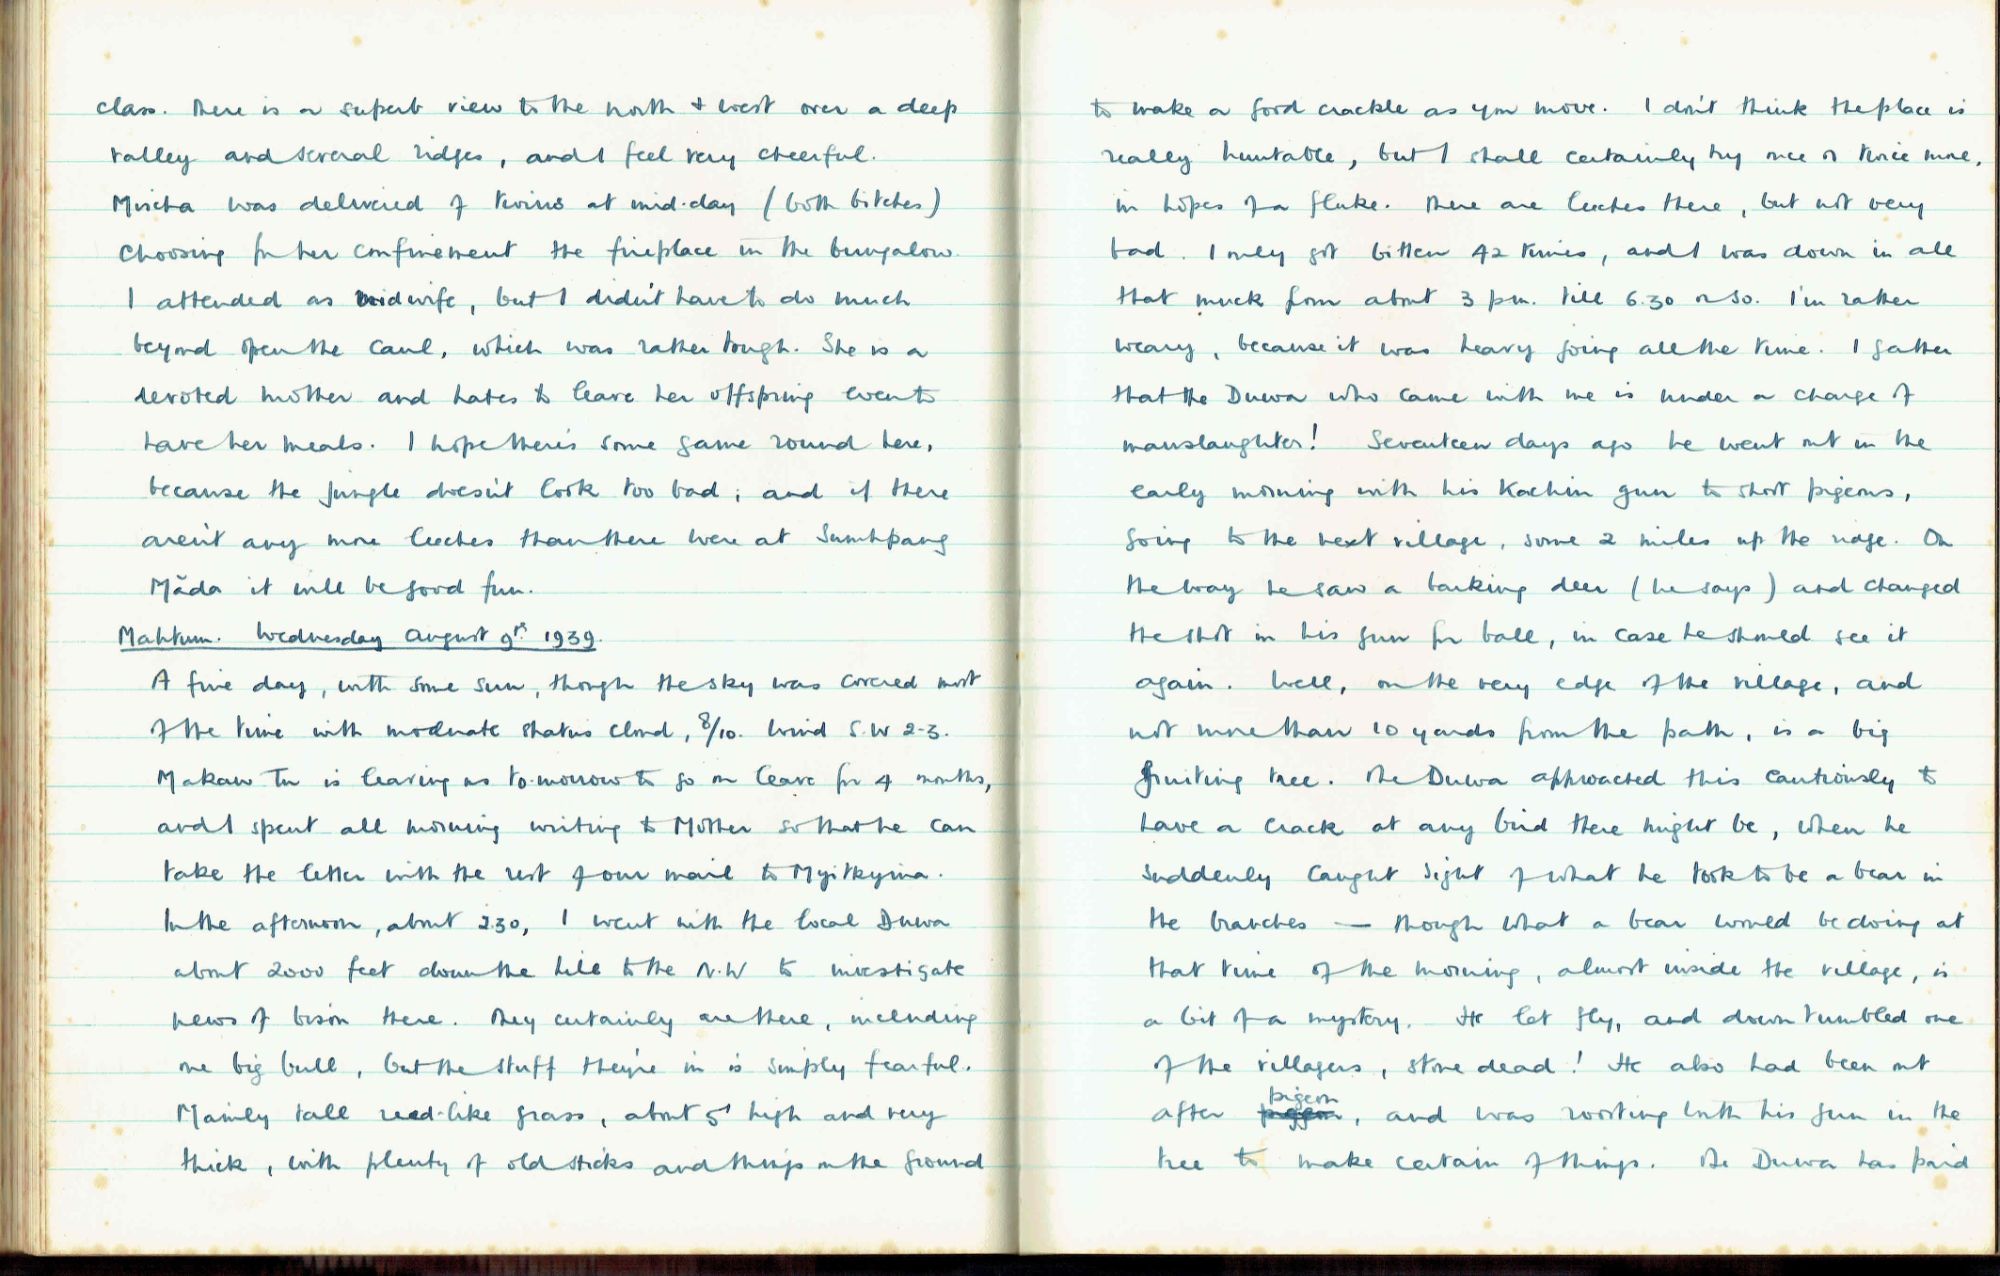 class. There is a superb view to the north & west over a deep
valley and several ridges, and I feel very cheerful.
Mircha was delivered of twins at mid-day (both bitches)
choosing for her confinement the fireplace in the bungalow.
I attended as midwife, but I didn't have to do much
beyond open the caul, which was rather tough. She is a
devoted mother and hates to leave her offspring even to
have her meals. I hope there's some game round here,
because the jungle doesn't look too bad; and if there
aren't any more leeches than there were at Sumhpang
Măda it will be good fun.
Mahtum. Wednesday August 9th 1939.
A fine day, with some sun, though the sky was covered most
of the time with moderate stratus cloud, 8/10. Wind S.W 2-3.
Makaw Tu is leaving us to-morrow to go on leave for 4 months,
and I spent all morning writing to Mother so that he can
take the letter with the rest of our mail to Myitkyina.
In the afternoon, about 2.30, I went with the local Duwa
about 2000 feet down the hill to the N.W to investigate
news of bison there. They certainly are there, including
one big bull, but the stuff they're in is simply fearful.
Mainly tall reed-like grass, about 5' high and very
thick, with plenty of old sticks and things on the ground
to make a good crackle as you move. I don't think the place is
really huntable, but I shall certainly try once or twice more,
in hopes of a fluke. There are leeches there, but not very
bad. I only got bitten 42 times, and I was down in all
that muck from about 3 pm. till 6.30 or so. I'm rather
weary, because it was heavy going all the time. I gather
that the Duwa who came with me is under a charge of
manslaughter! Seventeen days ago he went out in the
early morning with his Kachin gun to shoot pigeons,
going to the next village, some 2 miles up the ridge. On
the way he saw a barking deer (he says) and changed
the shot in his gun for ball, in case he should see it
again. Well, on the very edge of the village, and
not more than 10 yards from the path, is a big
fruiting tree. The Duwa approached this cautiously to
have a crack at any bird there might be, when he
suddenly caught sight of what he took to be a bear in
the branches — though what a bear would be doing at
that time of the morning, almost inside the village, is
a bit of a mystery. He let fly, and down tumbled one
of the villagers, stone dead! He also had been out
after pigeon, and was roosting with his gun in the
tree to make certain of things. The Duwa has paid